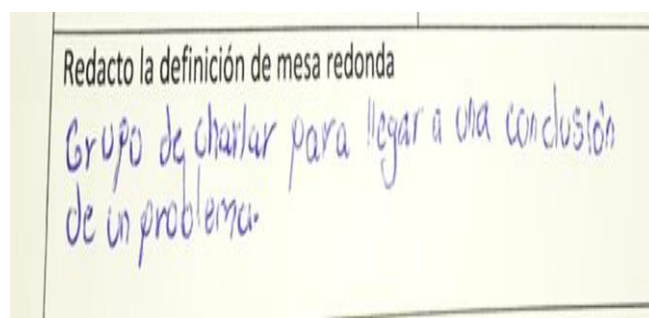 Redacto la definición de mesa redonda
Grupo de charlar para llegar a una conclusión
de un problema.